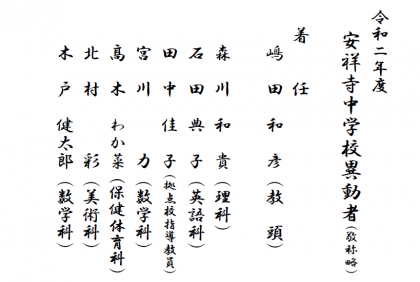 令和二年度
安祥寺中学校異動者（敬称略）
着任
嶋田和彦（教頭）
森川和貴（理科）
石田典子（英語科）
田中佳子（拠点校指導教員）
宮川力（数学科）
髙木わか菜（保健体育科）
北村彩（美術科）
木戸健太郎（数学科）